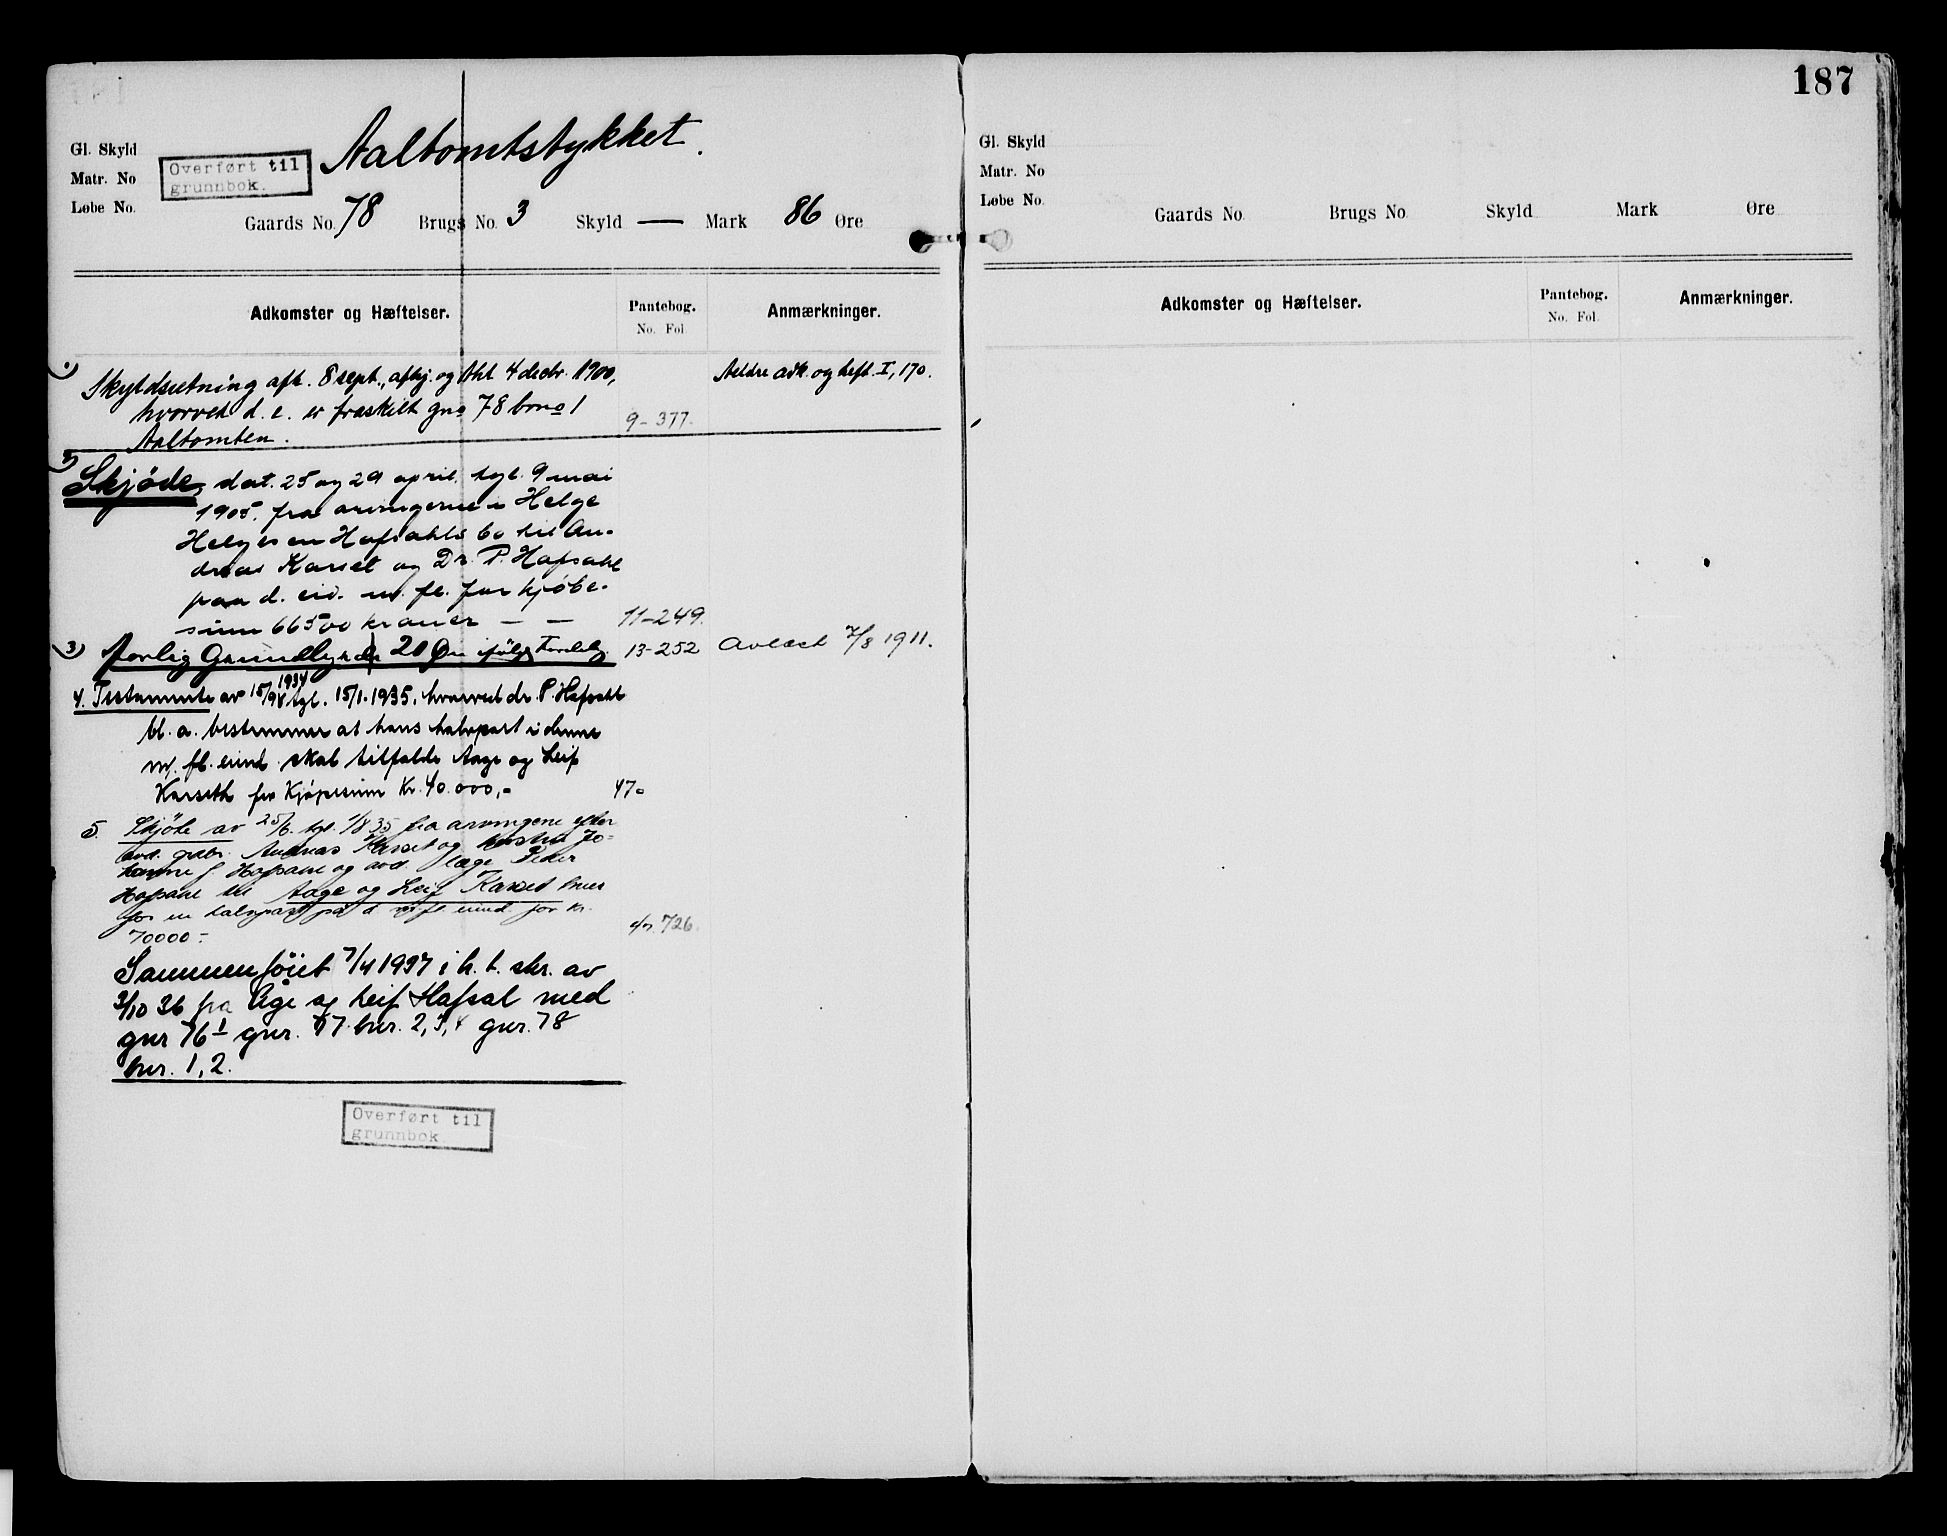 187
Gl. Skyld
Matr. No
Løbe No.
Overført til
grunnbok.
Aaltomtstykket.
Gaards No. 78 Brugs No. 3 Skyld — Mark 86 Øre
Adkomster og Hæftelser.
Pantebog.
No. Fol.
Anmærkninger.
1) Skyldsetning afh. 8 sept., afhj. og thl. 4 decbr. 1900, Aeldre adk. og heft. I, 170.
hvorved d. e. er fraskilt gno 78 bno 1 9-377.
Aaltomten.
2) Skjøde, dat. 25 og 29 april, tgl. 9 mai
1905, fra arvingerne i Helge
Helgesen Hafsahls bo til An-
dreas Karset og Dr. P. Hafsahl
paa d. eid. m. fl. for kjøbe-
sum 66500 kroner — — 11-249.
3) Aarlig Grundlynde 20 Øre ifølge 13-252 Avlæst 7/8 1911.
4. Testamente av 15/9 1934 tgl. 15/1.1935, hvorved dr. P. Hafsahl
bl. a. bestemmer at hans halvpart i denne
m. fl. eiend. skal tilfalde Aage og Leif
Karseth for Kjøpesum Kr. 40.000,- 47-
5. Skjøte av 25/6. tgl. 1/8 35 fra arvingene efter
avd. gdbr. Andreas Karset og hustru Jo-
hanne f. Hafsahl og avd. læge Peder
Hafsahl til Aage og Leif Karset hver
for en halvpart på d. m. fl. eiend. for kr.
70000.- 726.
Sammenføiet 7/4 1937 i h. t. skr. av
3/10 36 fra Åge og Leif Hafsal med
gnr 76 1 gnr. 77 bnr. 2, 3, 4 gnr. 78
bnr. 1, 2.
Overført til
grunnbok
Gl. Skyld
Matr. No
Løbe No.
Gaards No. Brugs No. Skyld Mark Øre
Adkomster og Hæftelser.
Pantebog.
No. Fol.
Anmærkninger.